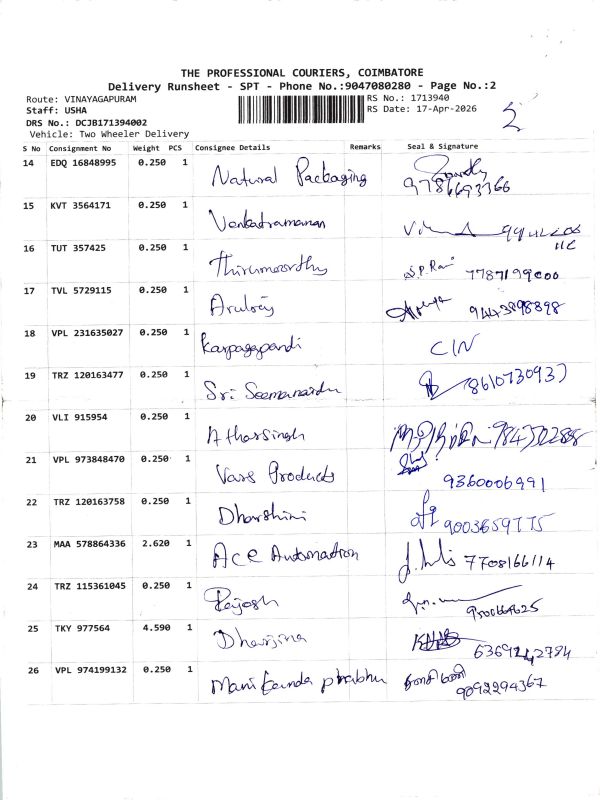 THE PROFESSIONAL COURIERS, COIMBATORE
Delivery Runsheet - SPT - Phone No.:9047080280 - Page No.:2
Route: VINAYAGAPURAM RS No.: 1713940
Staff: USHA RS Date: 17-Apr-2026
DRS No.: DCJB171394002
Vehicle: Two Wheeler Delivery
2
S No Consignment No Weight PCS Consignee Details Remarks Seal & Signature
14 EDQ 16848995 0.250 1 Natural Packaging 9786693366
15 KVT 3564171 0.250 1 Venkatramanan
16 TUT 357425 0.250 1 Thirumoorthy S.P. Rani 7787199000
17 TVL 5729115 0.250 1 Arulraj 9443898898
18 VPL 231635027 0.250 1 Karpagapandi C/N
19 TRZ 120163477 0.250 1 Sri 8610730937
20 VLI 915954 0.250 1 Athar Singh
21 VPL 973848470 0.250 1 Vars Products 9360006991
22 TRZ 120163758 0.250 1 Dharshini 9003659775
23 MAA 578864336 2.620 1 Ace Automation 7708166114
24 TRZ 115361045 0.250 1 Rajesh
25 TKY 977564 4.590 1
26 VPL 974199132 0.250 1 Manikanda prabhu 9092294367